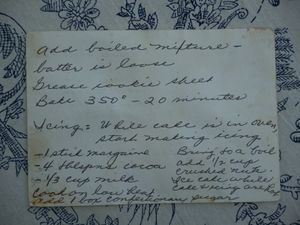 Add boiled mixture -
batter is loose
Grease cookie sheet
Bake 350° - 20 minutes
Icing: While cake is in oven,
start making icing
- 1 stick margarine
- 4 tblspns cocoa
- 1/3 cup milk
Cook on low heat
add 1 box confectionary sugar
Bring to a boil
add 1/2 cup
crushed nuts.
Ice cake while
cake & icing are hot